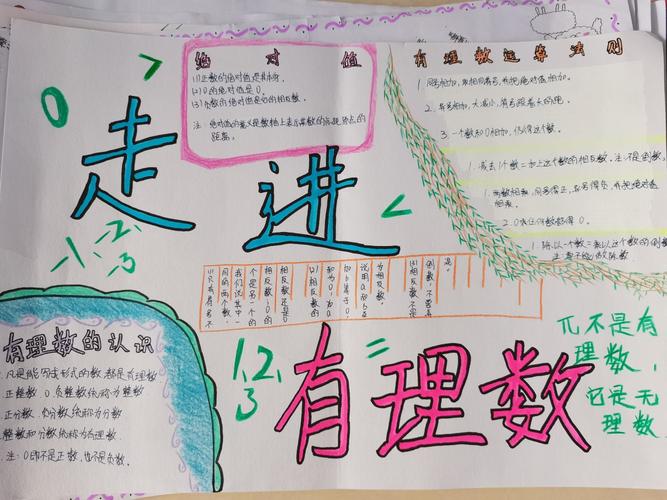 走进
有理数
0
>
<
=
-1、-2、-3
1、2、3
绝对值
(1)正数的绝对值是其本身,
(2)0的绝对值是0,
(3)负数的绝对值是它的相反数,
注:绝对值的意义是数轴上表示某数的点距原点的
距离.
有理数运算法则
1.同号相加,取相同符号,并把绝对值相加。
2.异号相加,大减小,符号跟着大的跑.
3.一个数和0相加,仍得这个数。
1.减去1个数=加上这个数的相反数。注:不是倒数。
1.两数相乘,同号得正,异号得负,并把绝对值
相乘。
2.0乘任何数都得0。
1.除以一个数=乘以这个数的倒数
(1)只有符号不
同的两个数,
我们说其中一
个是另一个的
相反数;0的
相反数还是0
(2)相反数的
和为0,
为相反数
(3)相反数不是
倒数,
有理数的认识
凡是能写成形式的数,都是有理数
正整数 0 负整数统称为整数
正分数、负分数统称为分数
整数和分数统称为有理数.
注:0即不是正数,也不是负数.
π不是有
理数,
它是无
理数